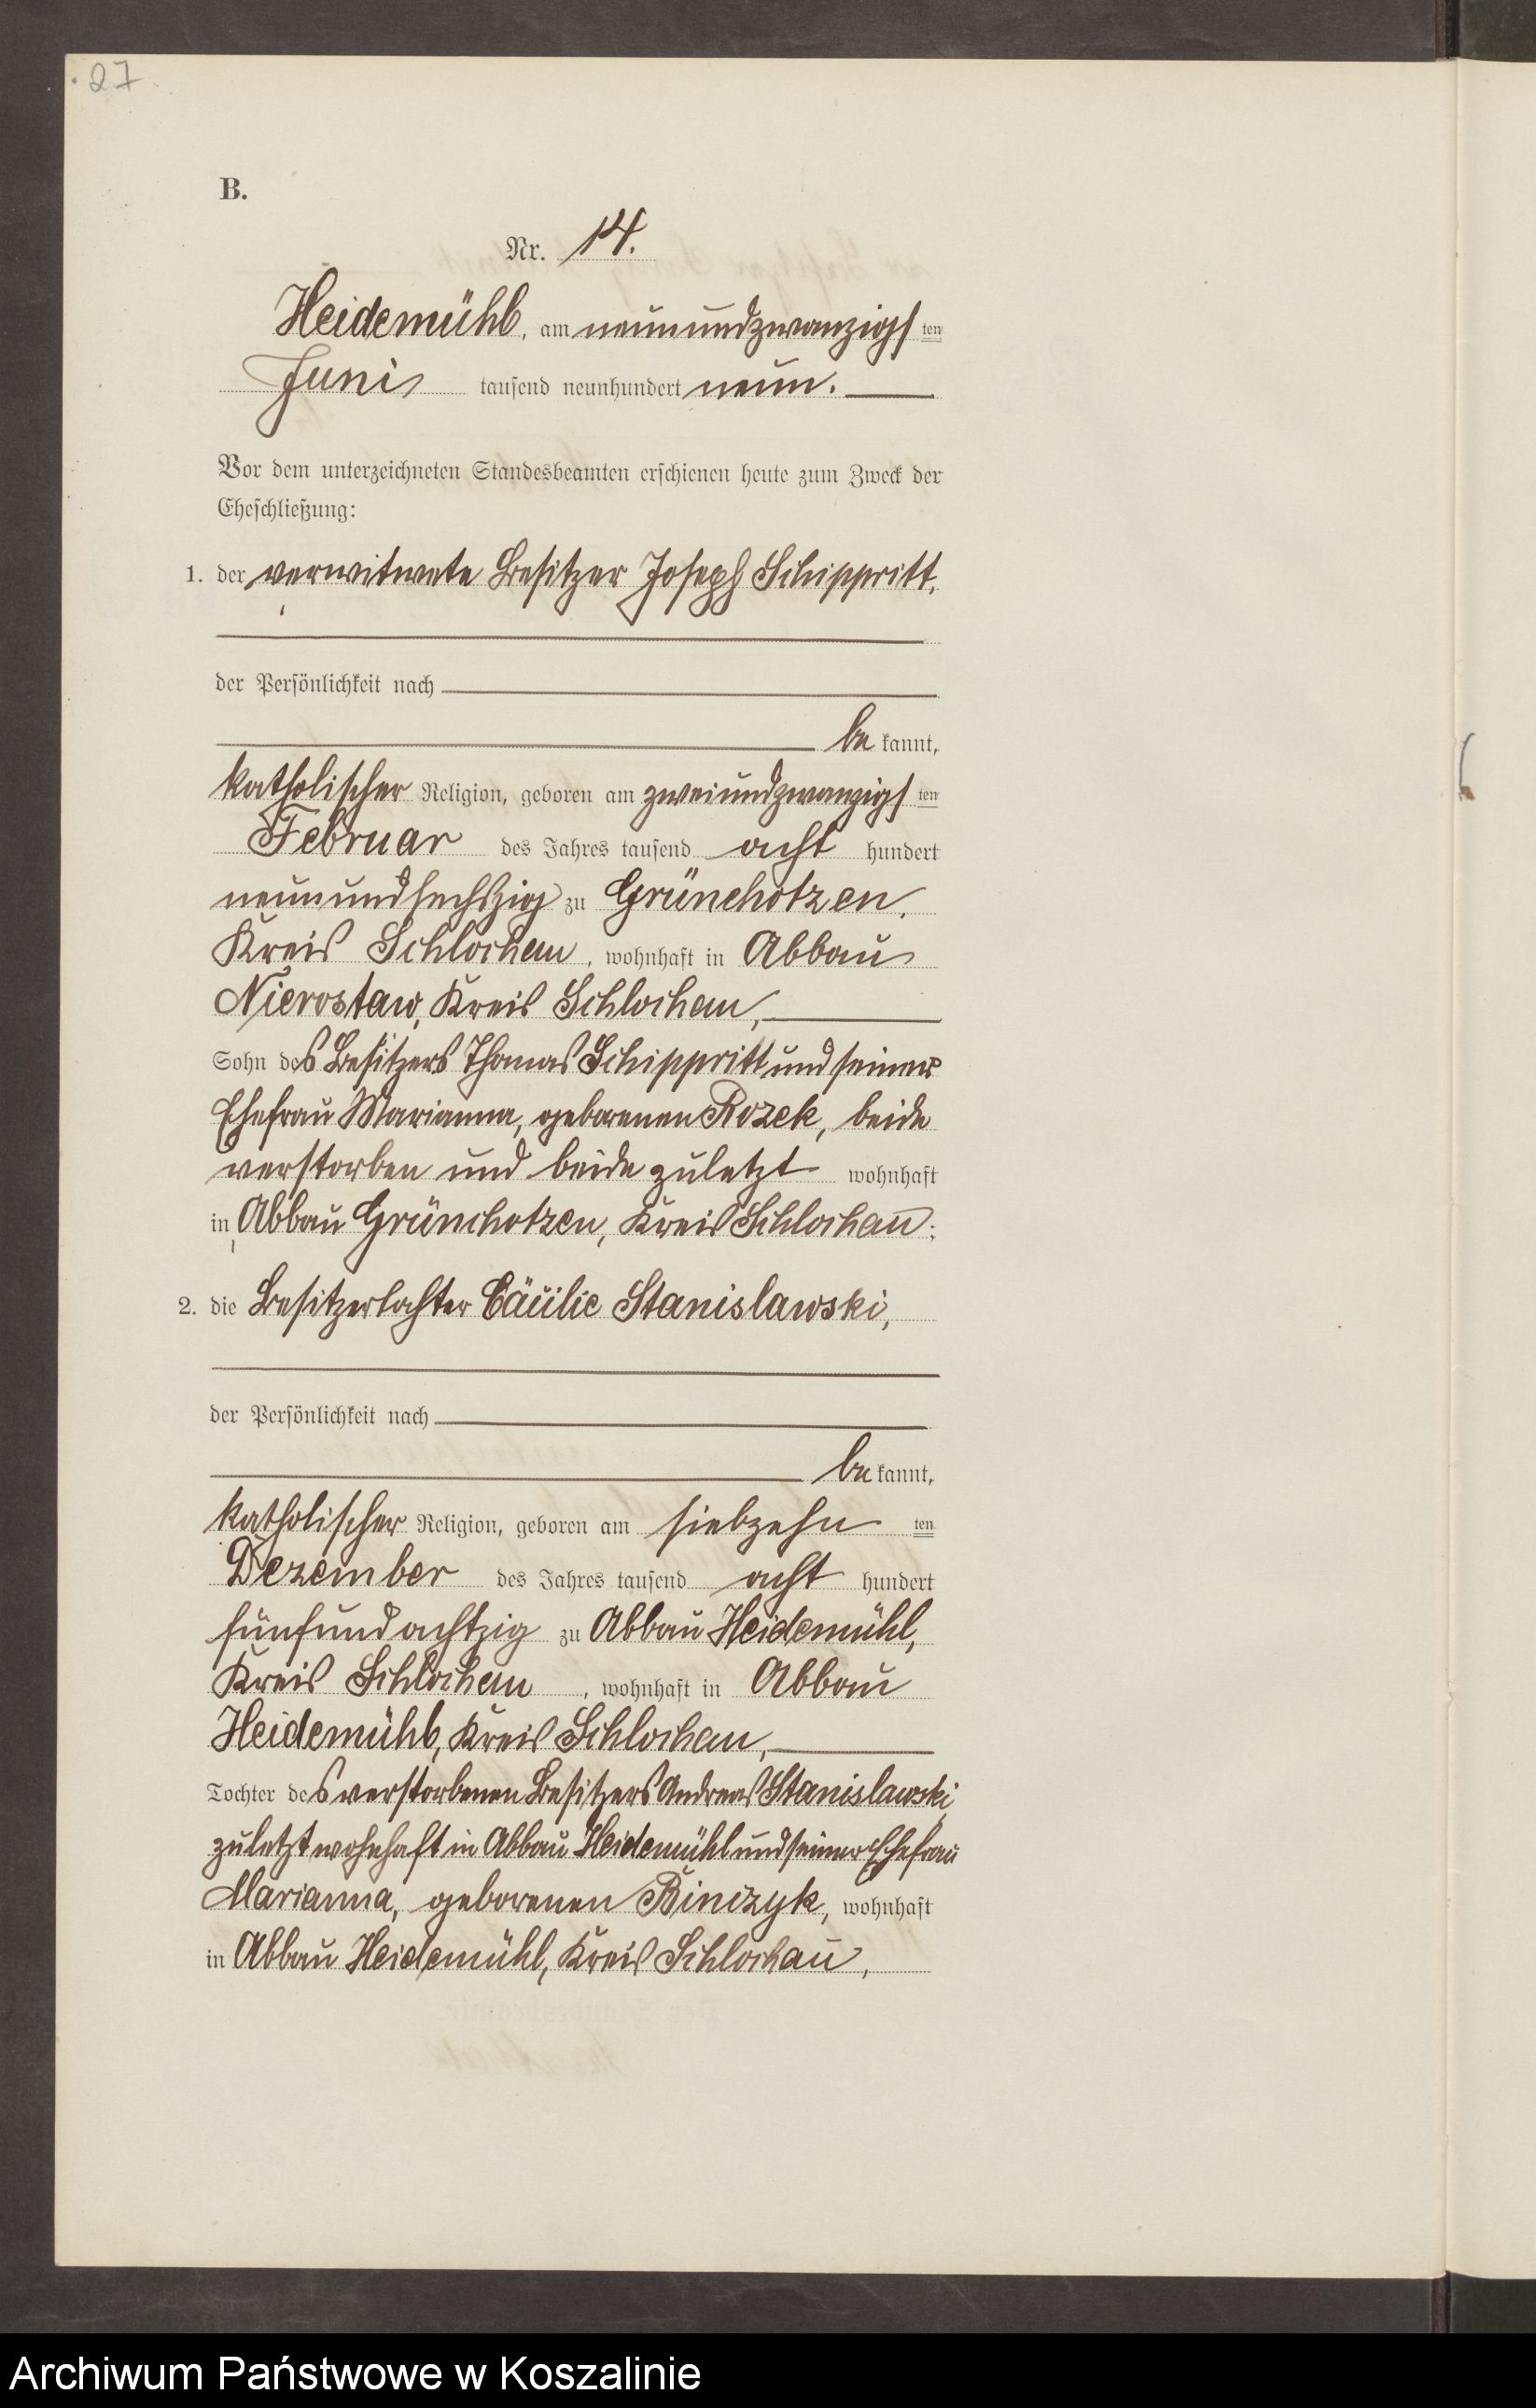 27
B.
Nr. 14.
Heidemühl, am neunundzwanzigsten
Juni tausend neunhundert neun.
Vor dem unterzeichneten Standesbeamten erschienen heute zum Zweck der
Eheschließung:
1. der verwitwete Besitzer Joseph Schippritt,
der Persönlichkeit nach
bekannt,
katholischer Religion, geboren am zweiundzwanzigsten
Februar des Jahres tausend acht hundert
neunundsechszig zu Grünchotzen,
Kreis Schlochau, wohnhaft in Abbau
Nierostaw, Kreis Schlochau,
Sohn des Besitzers Thomas Schippritt und seiner
Ehefrau Marianna, geborenen Rozek, beide
verstorben und beide zuletzt wohnhaft
in Abbau Grünchotzen, Kreis Schlochau;
2. die Besitzertochter Cäcilie Stanislawski,
der Persönlichkeit nach
bekannt,
katholischer Religion, geboren am siebzehnten
Dezember des Jahres tausend acht hundert
fünfundachtzig zu Abbau Heidemühl,
Kreis Schlochau, wohnhaft in Abbau
Heidemühl, Kreis Schlochau,
Tochter des verstorbenen Besitzers Andreas Stanislawski,
zuletzt wohnhaft in Abbau Heidemühl und seiner Ehefrau
Marianna, geborenen Binczyk, wohnhaft
in Abbau Heidemühl, Kreis Schlochau,
Archiwum Państwowe w Koszalinie